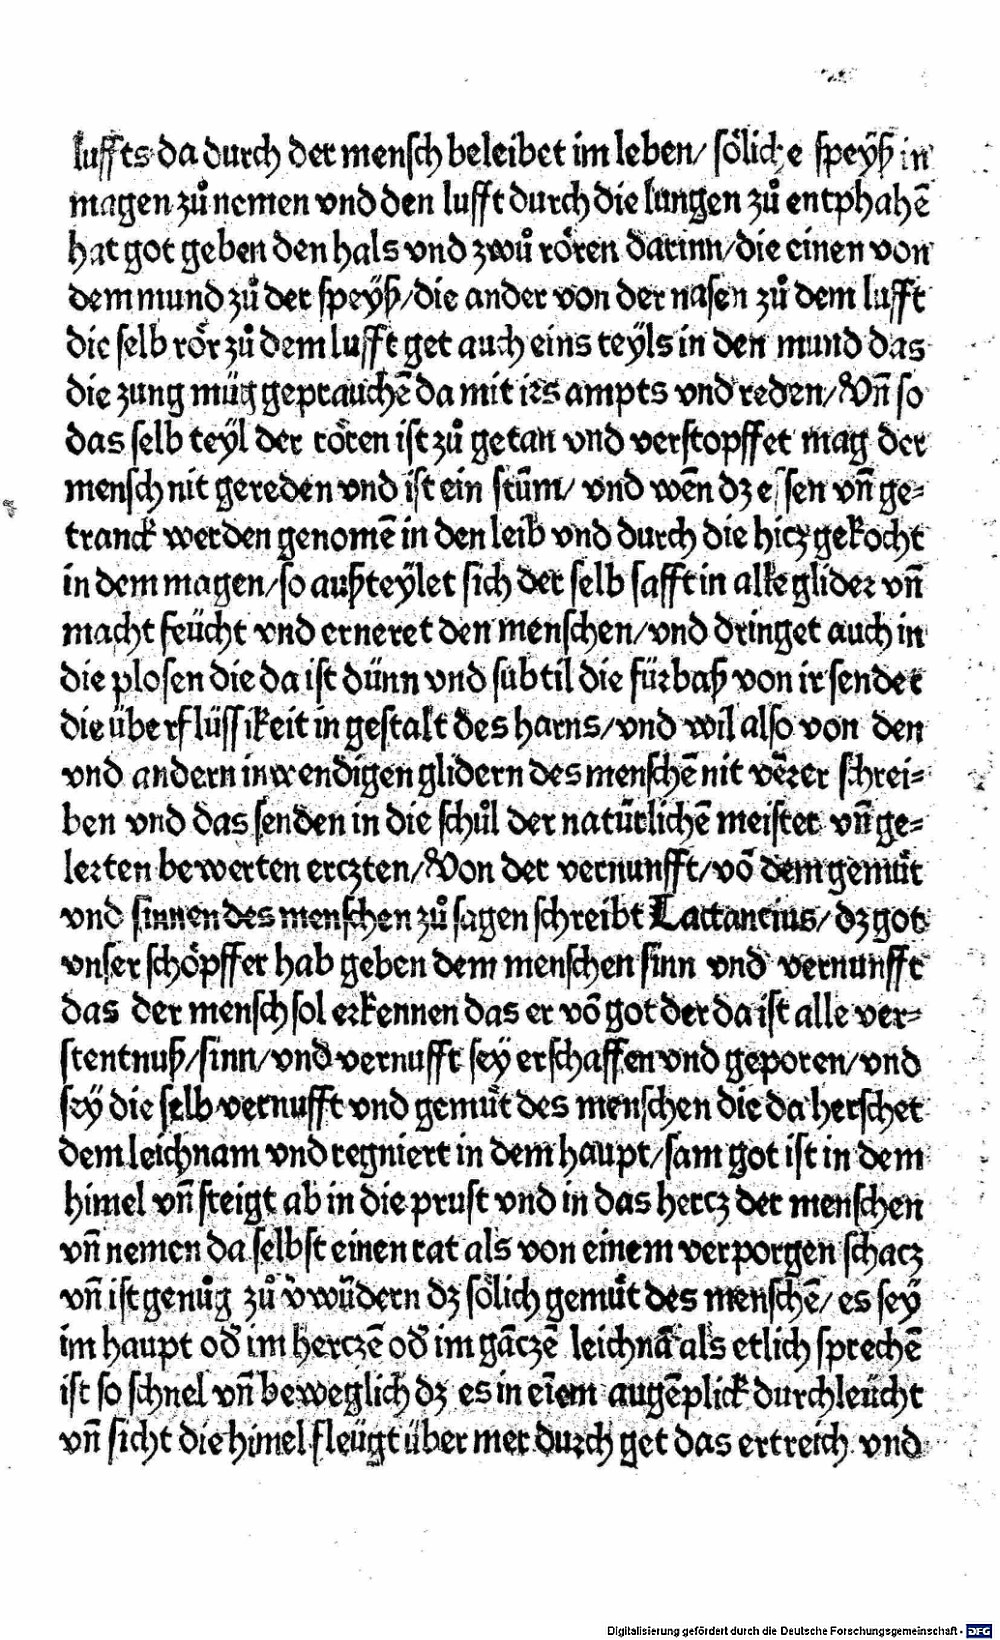 luffts da durch der mensch beleibet im leben/ sölliche speÿß in
magen zů nemen vnd den lufft durch die lungen zů entphahē
hat got geben den hals vnd zwů rören darinn/die einen von
dem mund zů der speÿß/die ander von der nasen zů dem lufft
die selb rör zů dem lufft get auch eins teÿls in den mund das
die zung müg geprauchē da mit irs ampts vnd reden/Vn̄ so
das selb teÿl der rören ist zů getan vnd verstopffet mag der
mensch nit gereden vnd ist ein stūm/ vnd wēn dz essen vn̄ ge⸗
tranck werden genomē in den leib vnd durch die hicz gekocht
in dem magen/so außteÿlet sich der selb safft in alle glider vn̄
macht feücht vnd erneret den menschen/vnd dringet auch in
die plosen die da ist dünn vnd subtil die fürbaß von ir sendet
die überflüssikeit in gestalt des harns/vnd wil also von den
vnd andern inwendigen glidern des menschē nit verrer schrei⸗
ben vnd das senden in die schůl der natürlichē meister vn̄ ge⸗
lerten bewerten erczten/Von der vernunfft/vō dem gemüt
vnd sinnen des menschen zů sagen schreibt Lactancius/ dz got
vnser schöpffer hab geben dem menschen sinn vnd vernunfft
das der mensch sol erkennen das er vō got der da ist alle ver⸗
stentnuß/sinn/vnd vernufft seÿ erschaffen vnd geporen/vnd
seÿ die selb vernufft vnd gemüt des menschen die da herschet
dem leichnam vnd regniert in dem haupt/sam got ist in dem
himel vn̄ steigt ab in die prust vnd in das hercz der menschen
vn̄ nemen da selbst einen rat als von einem verporgen schacz
vn̄ ist genůg zů v̄wūdern dz sölich gemüt des menschē/ es seÿ
im haupt od̄ im herczē od̄ im gāczē leichnā als etlich sprechē
ist so schnel vn̄ beweglich dz es in eīem augēplick durchleücht
vn̄ sicht die himel fleügt über mer durch get das ertreich vnd
Digitalisierung gefördert durch die Deutsche Forschungsgemeinschaft - DFG